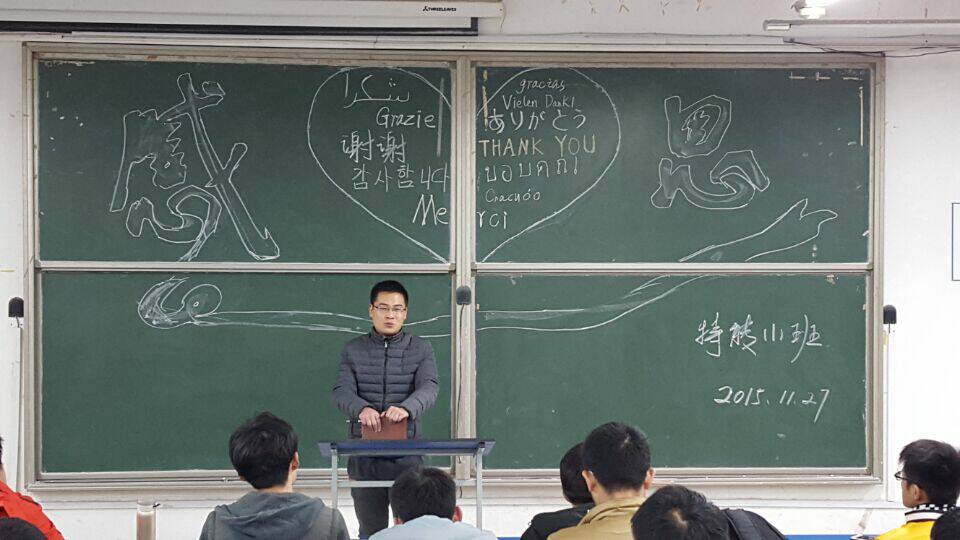 感
شكرا
Grazie
谢谢
감사합니다
gracias
Vielen Dank!
ありがとう
THANK YOU
ขอบคุณ!
Спасибо
Merci
恩
特能小班
2015.11.27